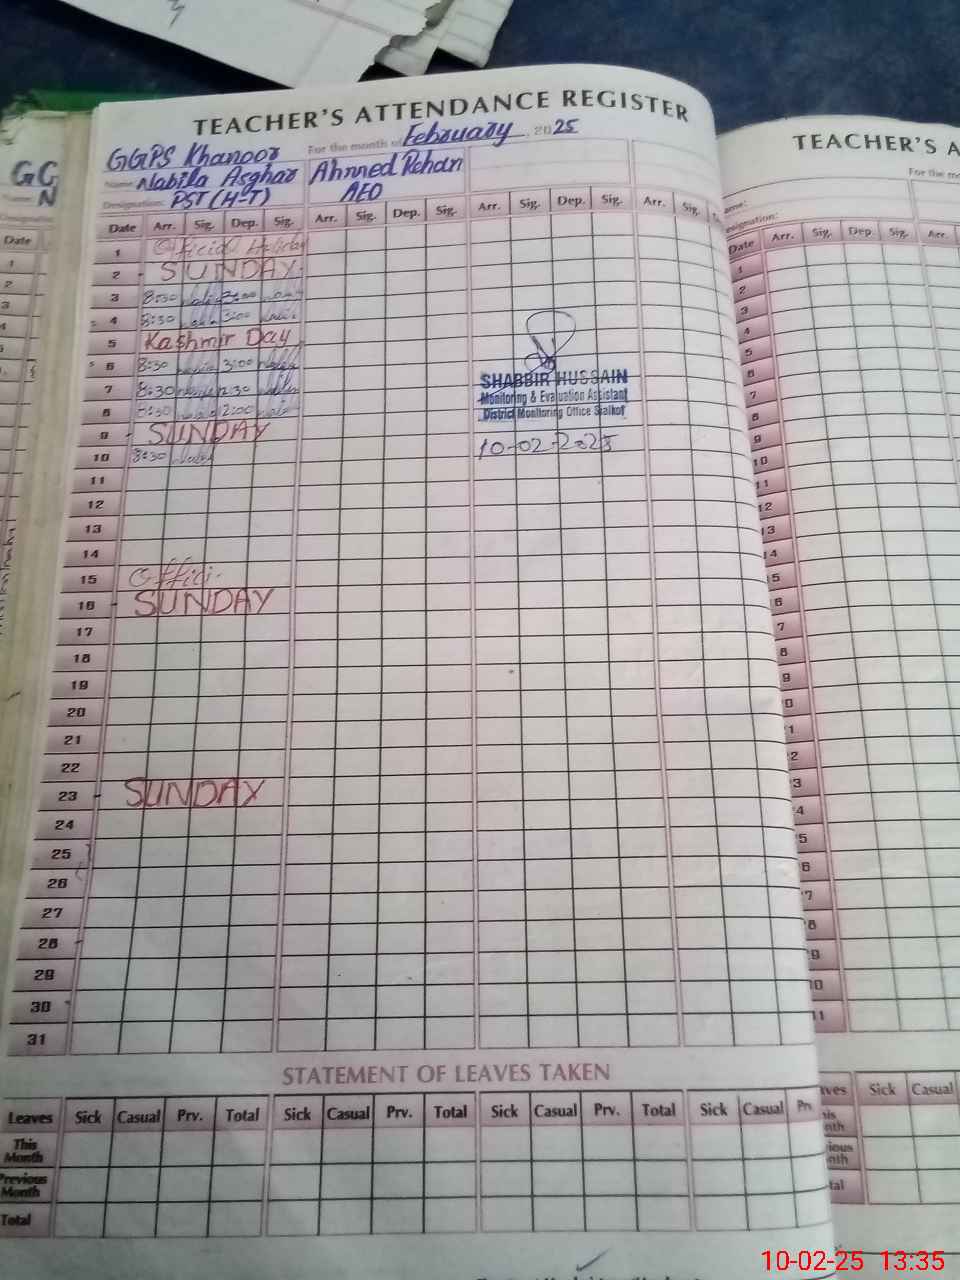 TEACHER'S ATTENDANCE REGISTER
For the month of February, 2025
GGPS Khanoor
Name: Nabila Asghar
Designation: PST (H-T)
Ahmed Rehan
AEO
Date Arr. Sig. Dep. Sig. Arr. Sig. Dep. Sig. Arr. Sig. Dep. Sig. Arr. Sig.
1 Official Holiday
2 SUNDAY
3 8:30 3:00
4 8:30 3:00
5 Kashmir Day
6 8:30 3:00
7 8:30 12:30
8 8:30 2:00
9 SUNDAY
10 8:30
SHABBIR HUSSAIN
Monitoring & Evaluation Assistant
District Monitoring Office Sialkot
10-02-2025
11
12
13
14
15 Offici
16 SUNDAY
17
18
19
20
21
22
23 SUNDAY
24
25
26
27
28
29
30
31
STATEMENT OF LEAVES TAKEN
Leaves Sick Casual Prv. Total Sick Casual Prv. Total Sick Casual Prv. Total Sick Casual
This Month
Previous Month
Total
TEACHER'S A
For the mo
Date Arr. Sig. Dep. Sig. Arr.
1
2
3
4
5
6
7
8
9
10
11
12
13
14
15
Sick Casual
10-02-25 13:35